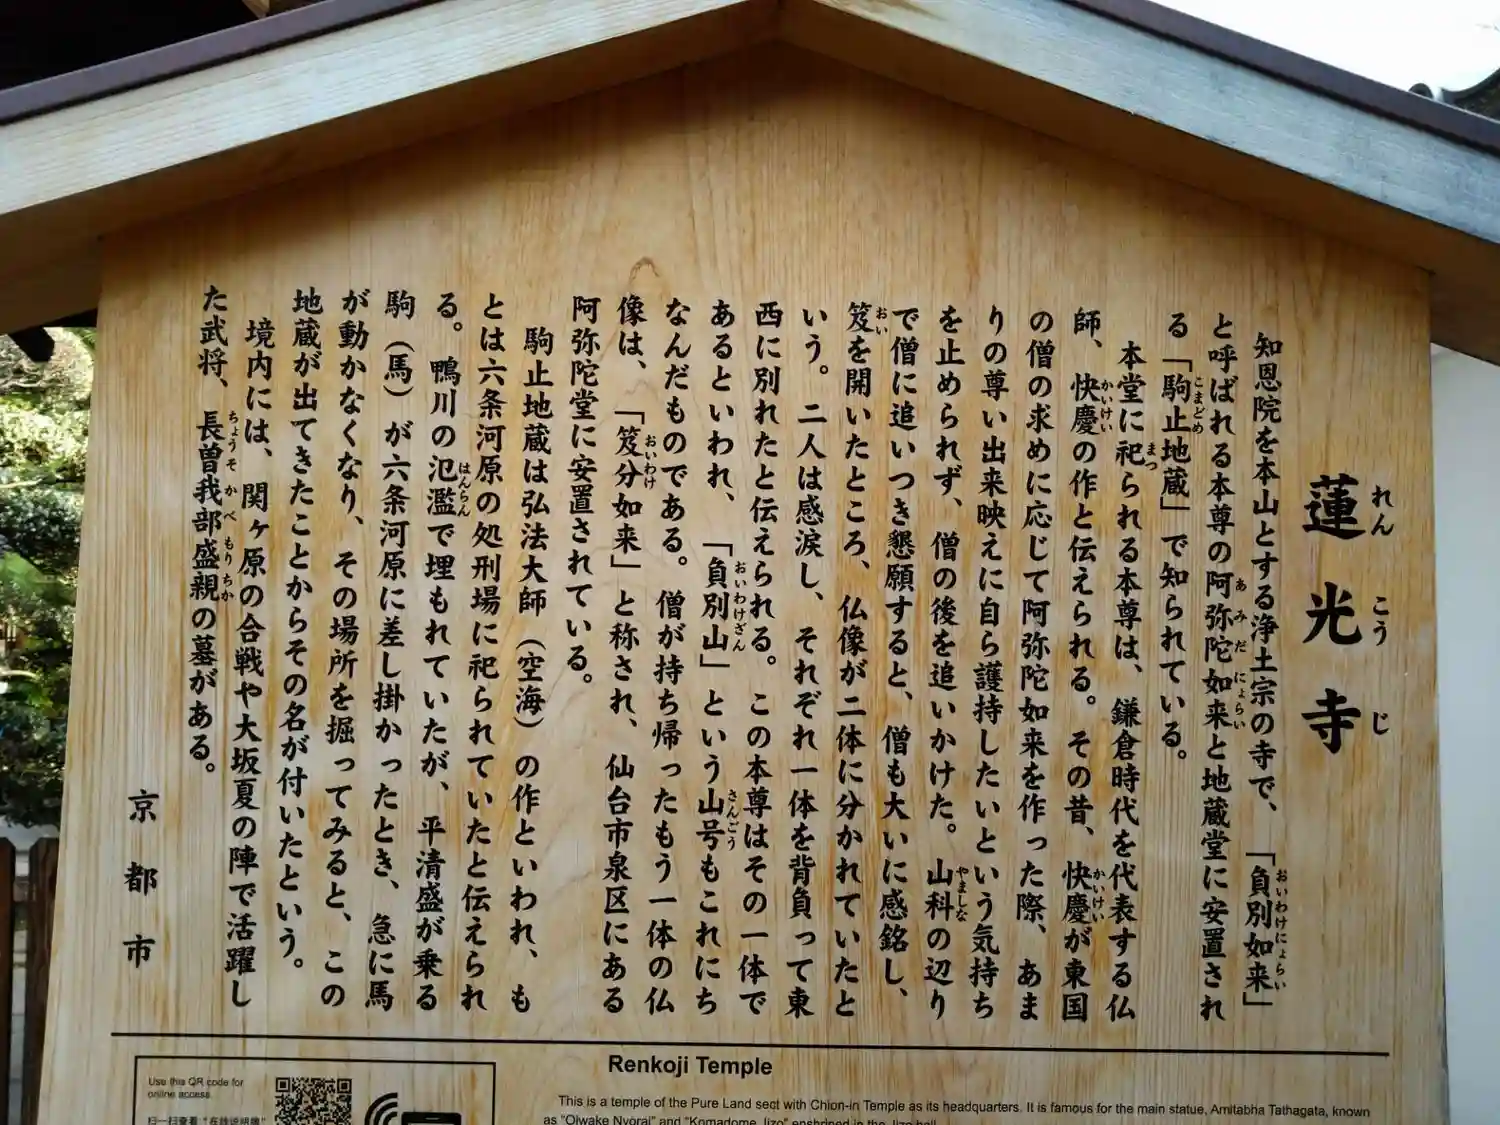 蓮光寺
れんこうじ
知恩院を本山とする浄土宗の寺で、「負別如来」
おいわけにょらい
と呼ばれる本尊の阿弥陀如来と地蔵堂に安置され
あみだにょらい
る「駒止地蔵」で知られている。
こまどめ
本堂に祀られる本尊は、鎌倉時代を代表する仏
まつ
師、快慶の作と伝えられる。その昔、快慶が東国
かいけい
かいけい
の僧の求めに応じて阿弥陀如来を作った際、あま
りの尊い出来映えに自ら護持したいという気持ち
を止められず、僧の後を追いかけた。山科の辺り
やましな
で僧に追いつき懇願すると、僧も大いに感銘し、
笈を開いたところ、仏像が二体に分かれていたと
おい
いう。二人は感涙し、それぞれ一体を背負って東
西に別れたと伝えられる。この本尊はその一体で
あるといわれ、「負別山」という山号もこれにち
おいわけざん
さんごう
なんだものである。僧が持ち帰ったもう一体の仏
像は、「笈分如来」と称され、仙台市泉区にある
おいわけ
阿弥陀堂に安置されている。
駒止地蔵は弘法大師（空海）の作といわれ、も
とは六条河原の処刑場に祀られていたと伝えられ
る。鴨川の氾濫で埋もれていたが、平清盛が乗る
はんらん
駒（馬）が六条河原に差し掛かったとき、急に馬
が動かなくなり、その場所を掘ってみると、この
地蔵が出てきたことからその名が付いたという。
境内には、関ヶ原の合戦や大坂夏の陣で活躍し
た武将、長曽我部盛親の墓がある。
ちょうそかべもりちか
京都市
Renkoji Temple
This is a temple of the Pure Land sect with Chion-in Temple as its headquarters. It is famous for the main statue, Amitabha Tathagata, known
as "Oiwake Nyorai" and "Komadome Jizo" enshrined in the Jizo hall.
Use this QR code for
online access.
扫一扫查看"在线说明牌"